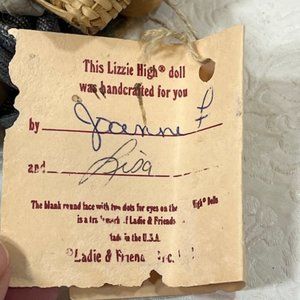 This Lizzie High® doll
was handcrafted for you
by Joanne F
and Lisa
The blank round face with two dots for eyes on the High® Dolls
is a trademark of Ladie & Friends
Made in the U.S.A.
©Ladie & Friends, Inc.